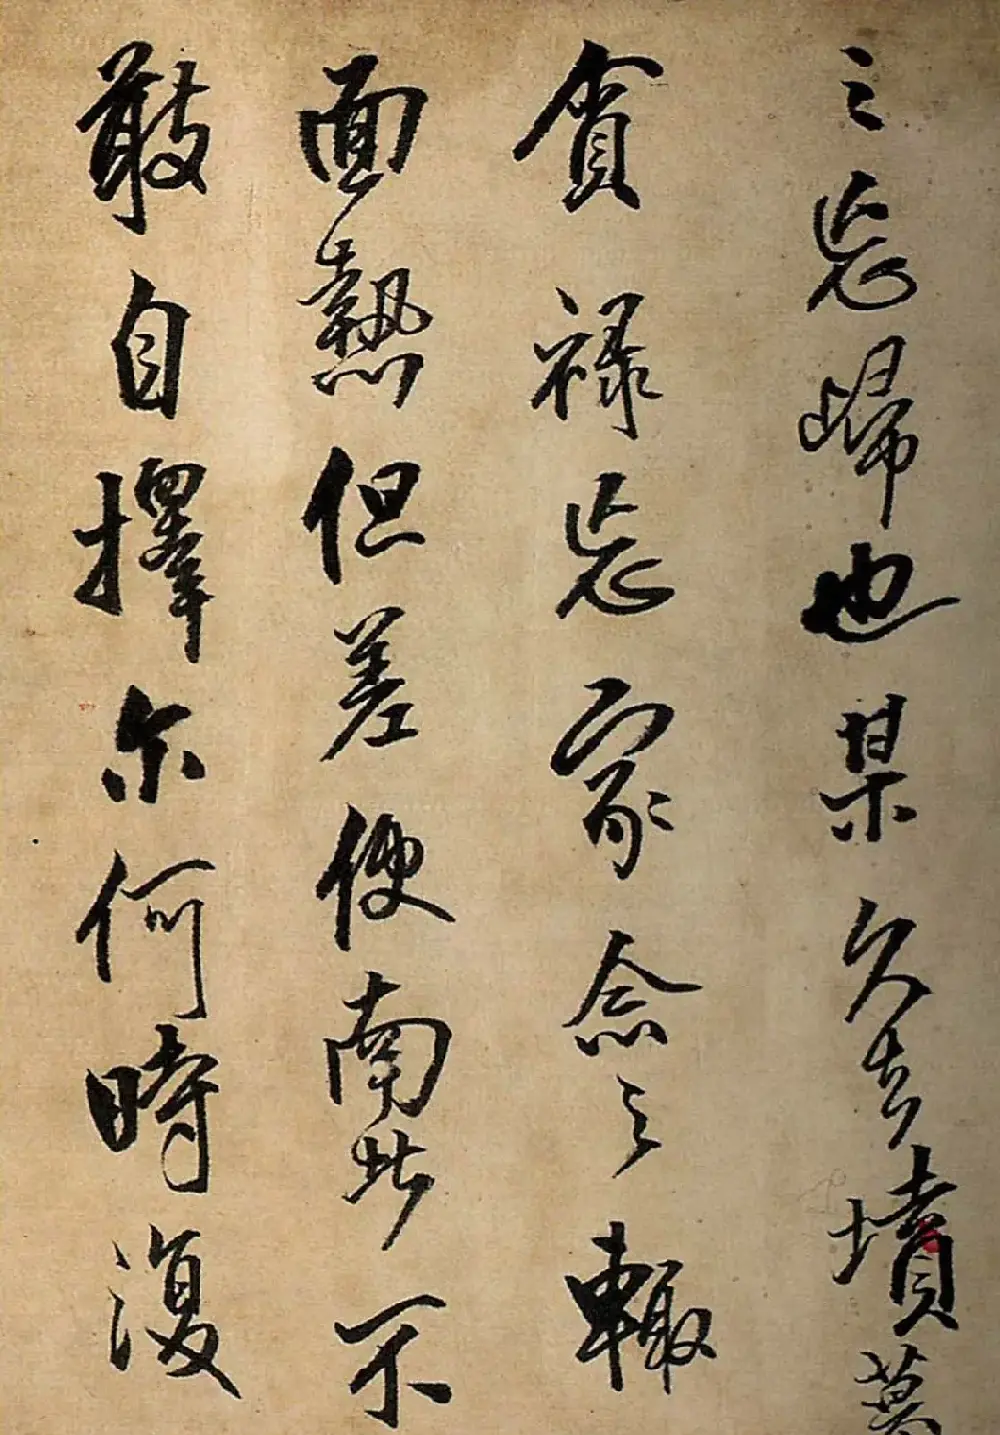 之忘歸也某久去墳墓
貪祿忘家念之輙
面熱但差使南北不
敢自擇尔何時復